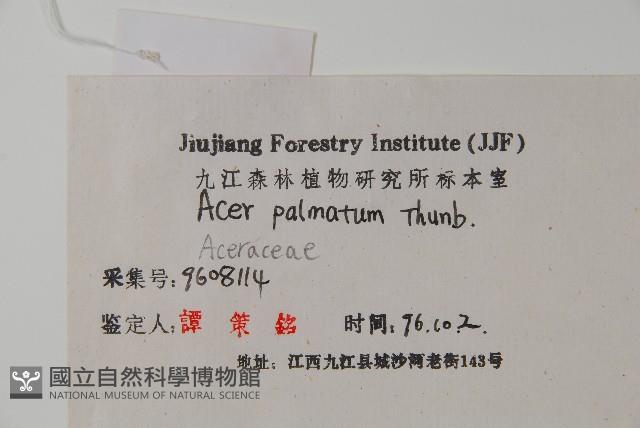 Jiujiang Forestry Institute (JJF)
九江森林植物研究所标本室
Acer palmatum Thunb.
Aceraceae
采集号:9608114
鉴定人:譚策銘 时间:96.10.2.
地址:江西九江县城沙河老街143号
國立自然科學博物館
NATIONAL MUSEUM OF NATURAL SCIENCE